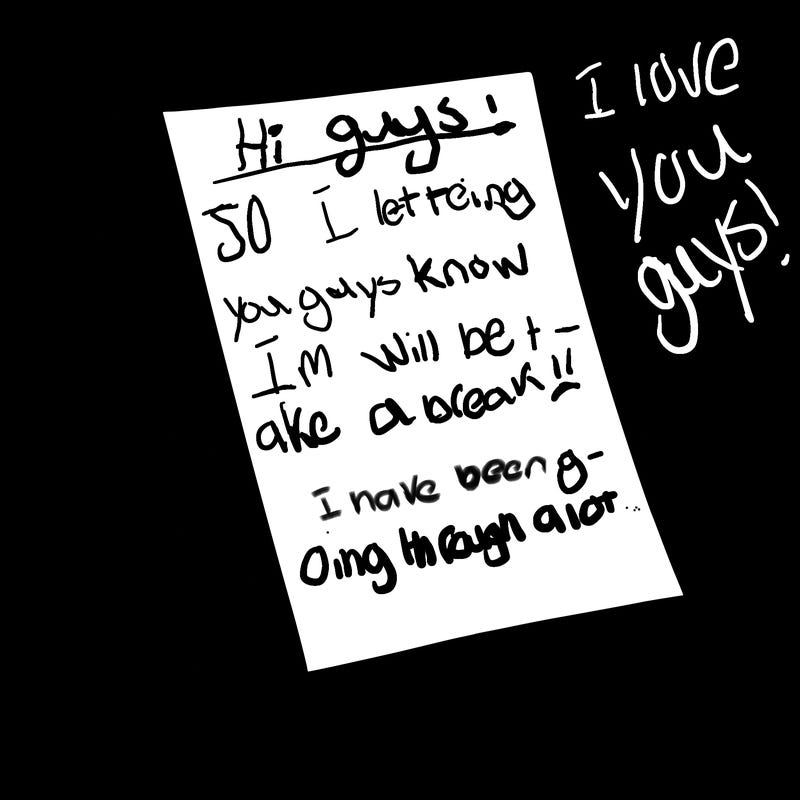 Hi guys!
SO I letteing
you guys know
Im will be t-
ake a break!!
I have been g-
Oing through a lot...
I love
you
guys!